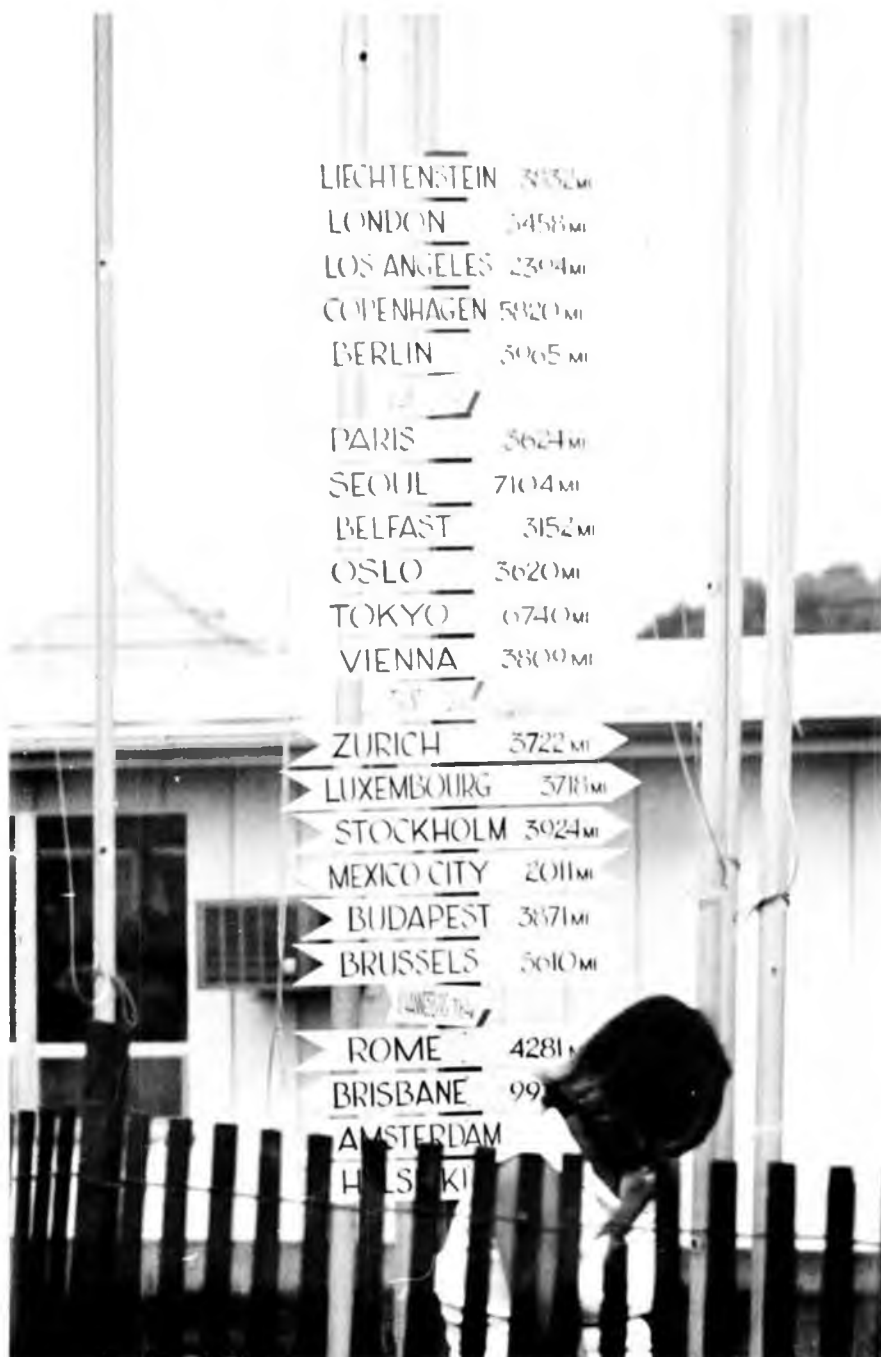 LIECHTENSTEIN 3832 MI
LONDON 3458 MI
LOS ANGELES 2304 MI
COPENHAGEN 3820 MI
BERLIN 3965 MI
PARIS 3624 MI
SEOUL 7104 MI
BELFAST 3152 MI
OSLO 3620 MI
TOKYO 6740 MI
VIENNA 3809 MI
ZURICH 3722 MI
LUXEMBOURG 3718 MI
STOCKHOLM 3924 MI
MEXICO CITY 2011 MI
BUDAPEST 3871 MI
BRUSSELS 3610 MI
ROME 4281
BRISBANE
AMSTERDAM